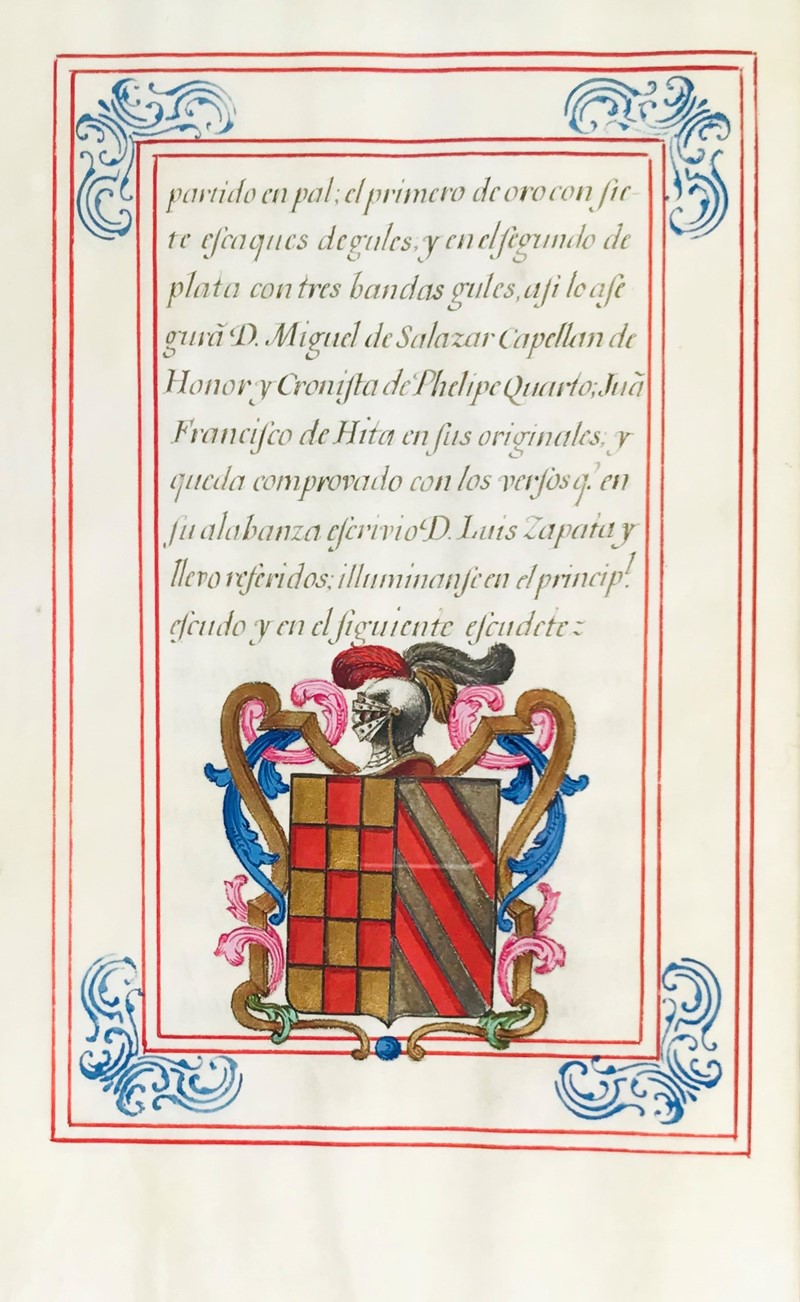 partido en pal; el primero de oro con ſie-
te eſcaques de gules, y en el ſegundo de
plata con tres bandas gules, aſi lo aſe
gurã D. Miguel de Salazar Capellan de
Honor y Croniſta de Phelipe Quarto; Juã
Franciſco de Hita en ſus originales, y
queda comprovado con los verſos q.ᵉ en
ſu alabanza eſcrivio D. Luis Zapata y
llevo referidos; illuminanſe en el princip.ˡ
eſcudo y en el ſiguiente eſcudete z